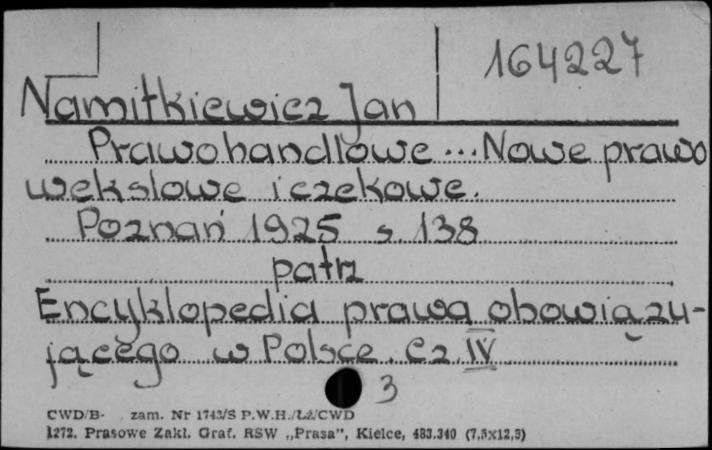 164227
Namitkiewicz Jan
Prawo handlowe ... Nowe prawo
wekslowe i czekowe.
Poznań 1925 s. 138
patrz
Encyklopedia prawa obowiązu-
jącego w Polsce. Cz. IV
3
CWD/B- zam. Nr 1743/S P.W.H./Łż/CWD
1272. Prasowe Zakł. Graf. RSW „Prasa”, Kielce, 483.340 (7,5x12,5)